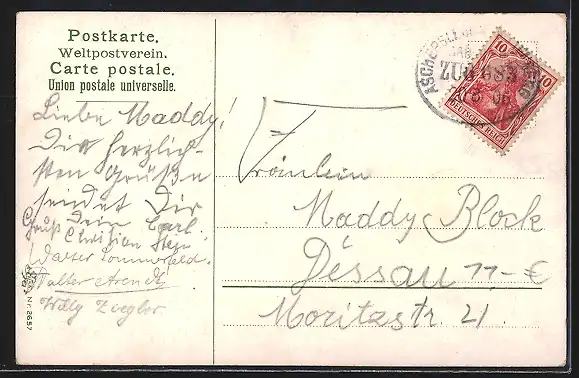 Postkarte.
Weltpostverein.
Carte postale.
Union postale universelle.
Liebe Maddy!
Die herzlich-
sten Grüße
sendet Dir
Dein Carl.
Gruß Christian
Walter Sommerfeld.
Walter Arendt
Willy Ziegler
Nr. 2657
ZUG 683
10 10
DEUTSCHES REICH
Fräulein
Maddy Block
Dessau
Moritzstr 21